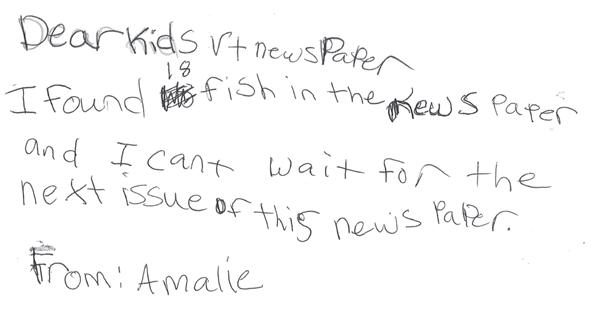 Dear Kids Vt newspaper
I found 18 fish in the news paper
and I cant wait for the
next issue of this news paper.
From: Amalie